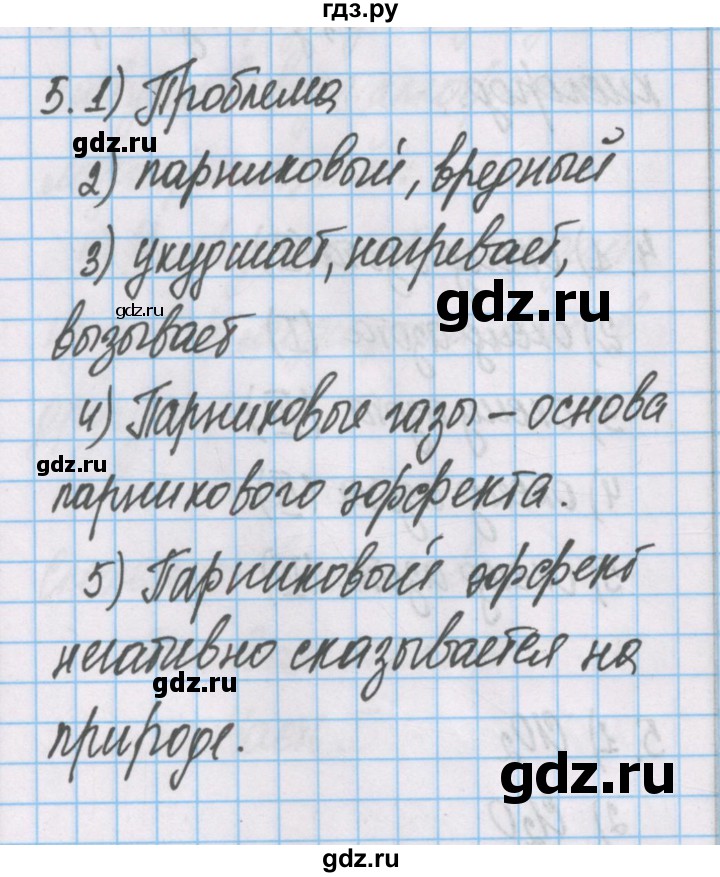 гдз.ру
5. 1) Проблема
gdz.ru
2) парниковый, вредный
3) ухудшает, нагревает,
gdz.ru
gdz.ru
вызывает
4) Парниковые газы – основа
gdz.ru
парникового эффекта.
5) Парниковый эффект
негативно сказывается на
gdz.ru
природе.
gdz.ru
gdz.ru